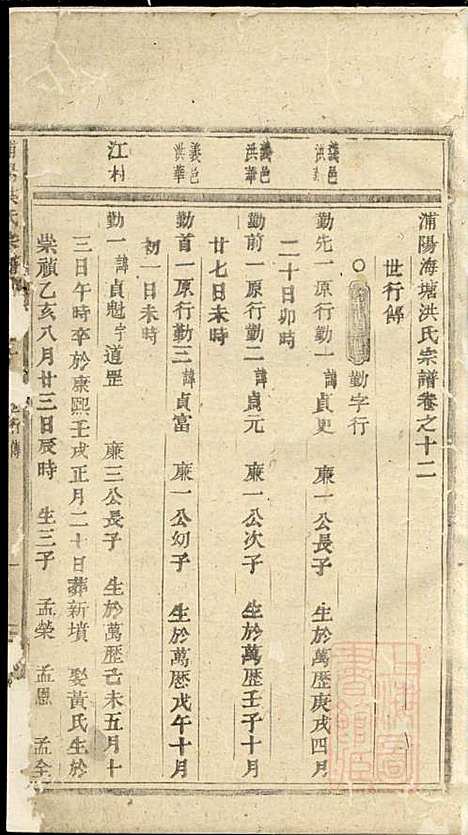 浦陽海塘洪氏宗譜卷之十二
世行傳
勤字行
義邑洪華
勤先一原行勤一諱貞更 廉一公長子 生於萬歷庚戌四月
二十日卯時
義邑洪華
勤前一原行勤二諱貞元 廉一公次子 生於萬歷壬子十月
廿七日未時
義邑洪華
勤首一原行勤三諱貞富 廉一公幼子 生於萬歷戊午十月
初一日未時
江村
勤一諱貞魁字道罡 廉三公長子 生於萬歷己未五月十
三日午時卒於康熙壬戌正月二十日葬新墳 娶黃氏生於
崇禎乙亥八月廿三日辰時 生三子 孟榮 孟恩 孟全